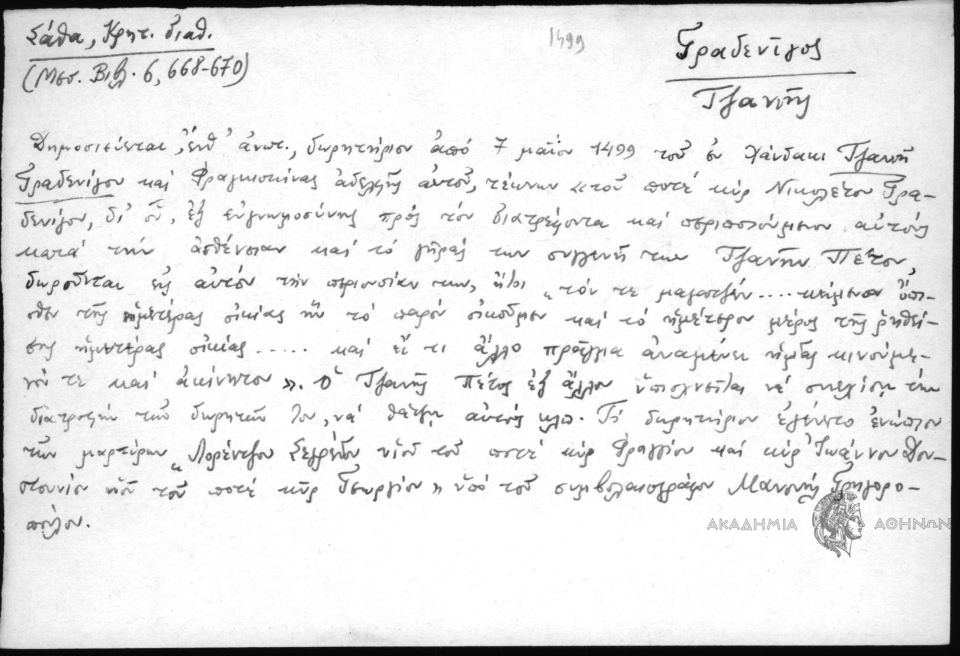 Σάθα, Κρητ. διαθ.
(Μεσ. Βιβλ. 6, 668-670)
1499
Γραδενῖγος
Τζανῆς
Δημοσιεύεται, ἔνθ' ἀνωτ., δωρητήριον ἀπό 7 μαΐου 1499 τοῦ ἐν Χάνδακι Τζανῆ
Γραδενίγου καί Φραγκισκίνας ἀδελφῆς αὐτοῦ, τέκνων τοῦ ποτέ κύρ Νικολέτου Γρα-
δενίγου, δι' οὗ, ἐξ εὐγνωμοσύνης πρός τόν διατρέφοντα καί περιποιούμενον αὐτούς
κατά τήν ἀσθένειαν καί τό γῆράς των συγγενῆ των Τζανῆν Πέτον,
δωροῦνται εἰς αὐτόν τήν περιουσίαν των, ἤτοι "τόν τε μαγατζέν .... κείμενον ὄπι-
σθεν τῆς ἡμετέρας οἰκίας ἥν τό παρόν οἰκοῦμεν καί τό ἡμέτερον μέρος τῆς ῥηθεί-
σης ἡμετέρας οἰκίας ..... καί εἴ τι ἄλλο πρᾶγμα ἀναμένει ἡμᾶς κινούμε-
νόν τε καί ἀκίνητον". Ὁ Τζανῆς Πέτος ἐξ ἄλλου ὑπόσχεται νά συνεχίσῃ τήν
διατροφήν τῶν δωρητῶν του, νά θάψῃ αὐτούς κλπ. Τό δωρητήριον ἐγένετο ἐνώπιον
τῶν μαρτύρων "Λορέντζου Σεγρέδου υἱοῦ τοῦ ποτέ κύρ Φραγγίου καί κύρ Ἰωάννου Δον-
υἱοῦ τοῦ ποτέ κύρ Γεωργίου" ὑπό τοῦ συμβολαιογράφου Μανουήλ Γρηγορο-
πούλου.
ΑΚΑΔΗΜΙΑ ΑΘΗΝΩΝ